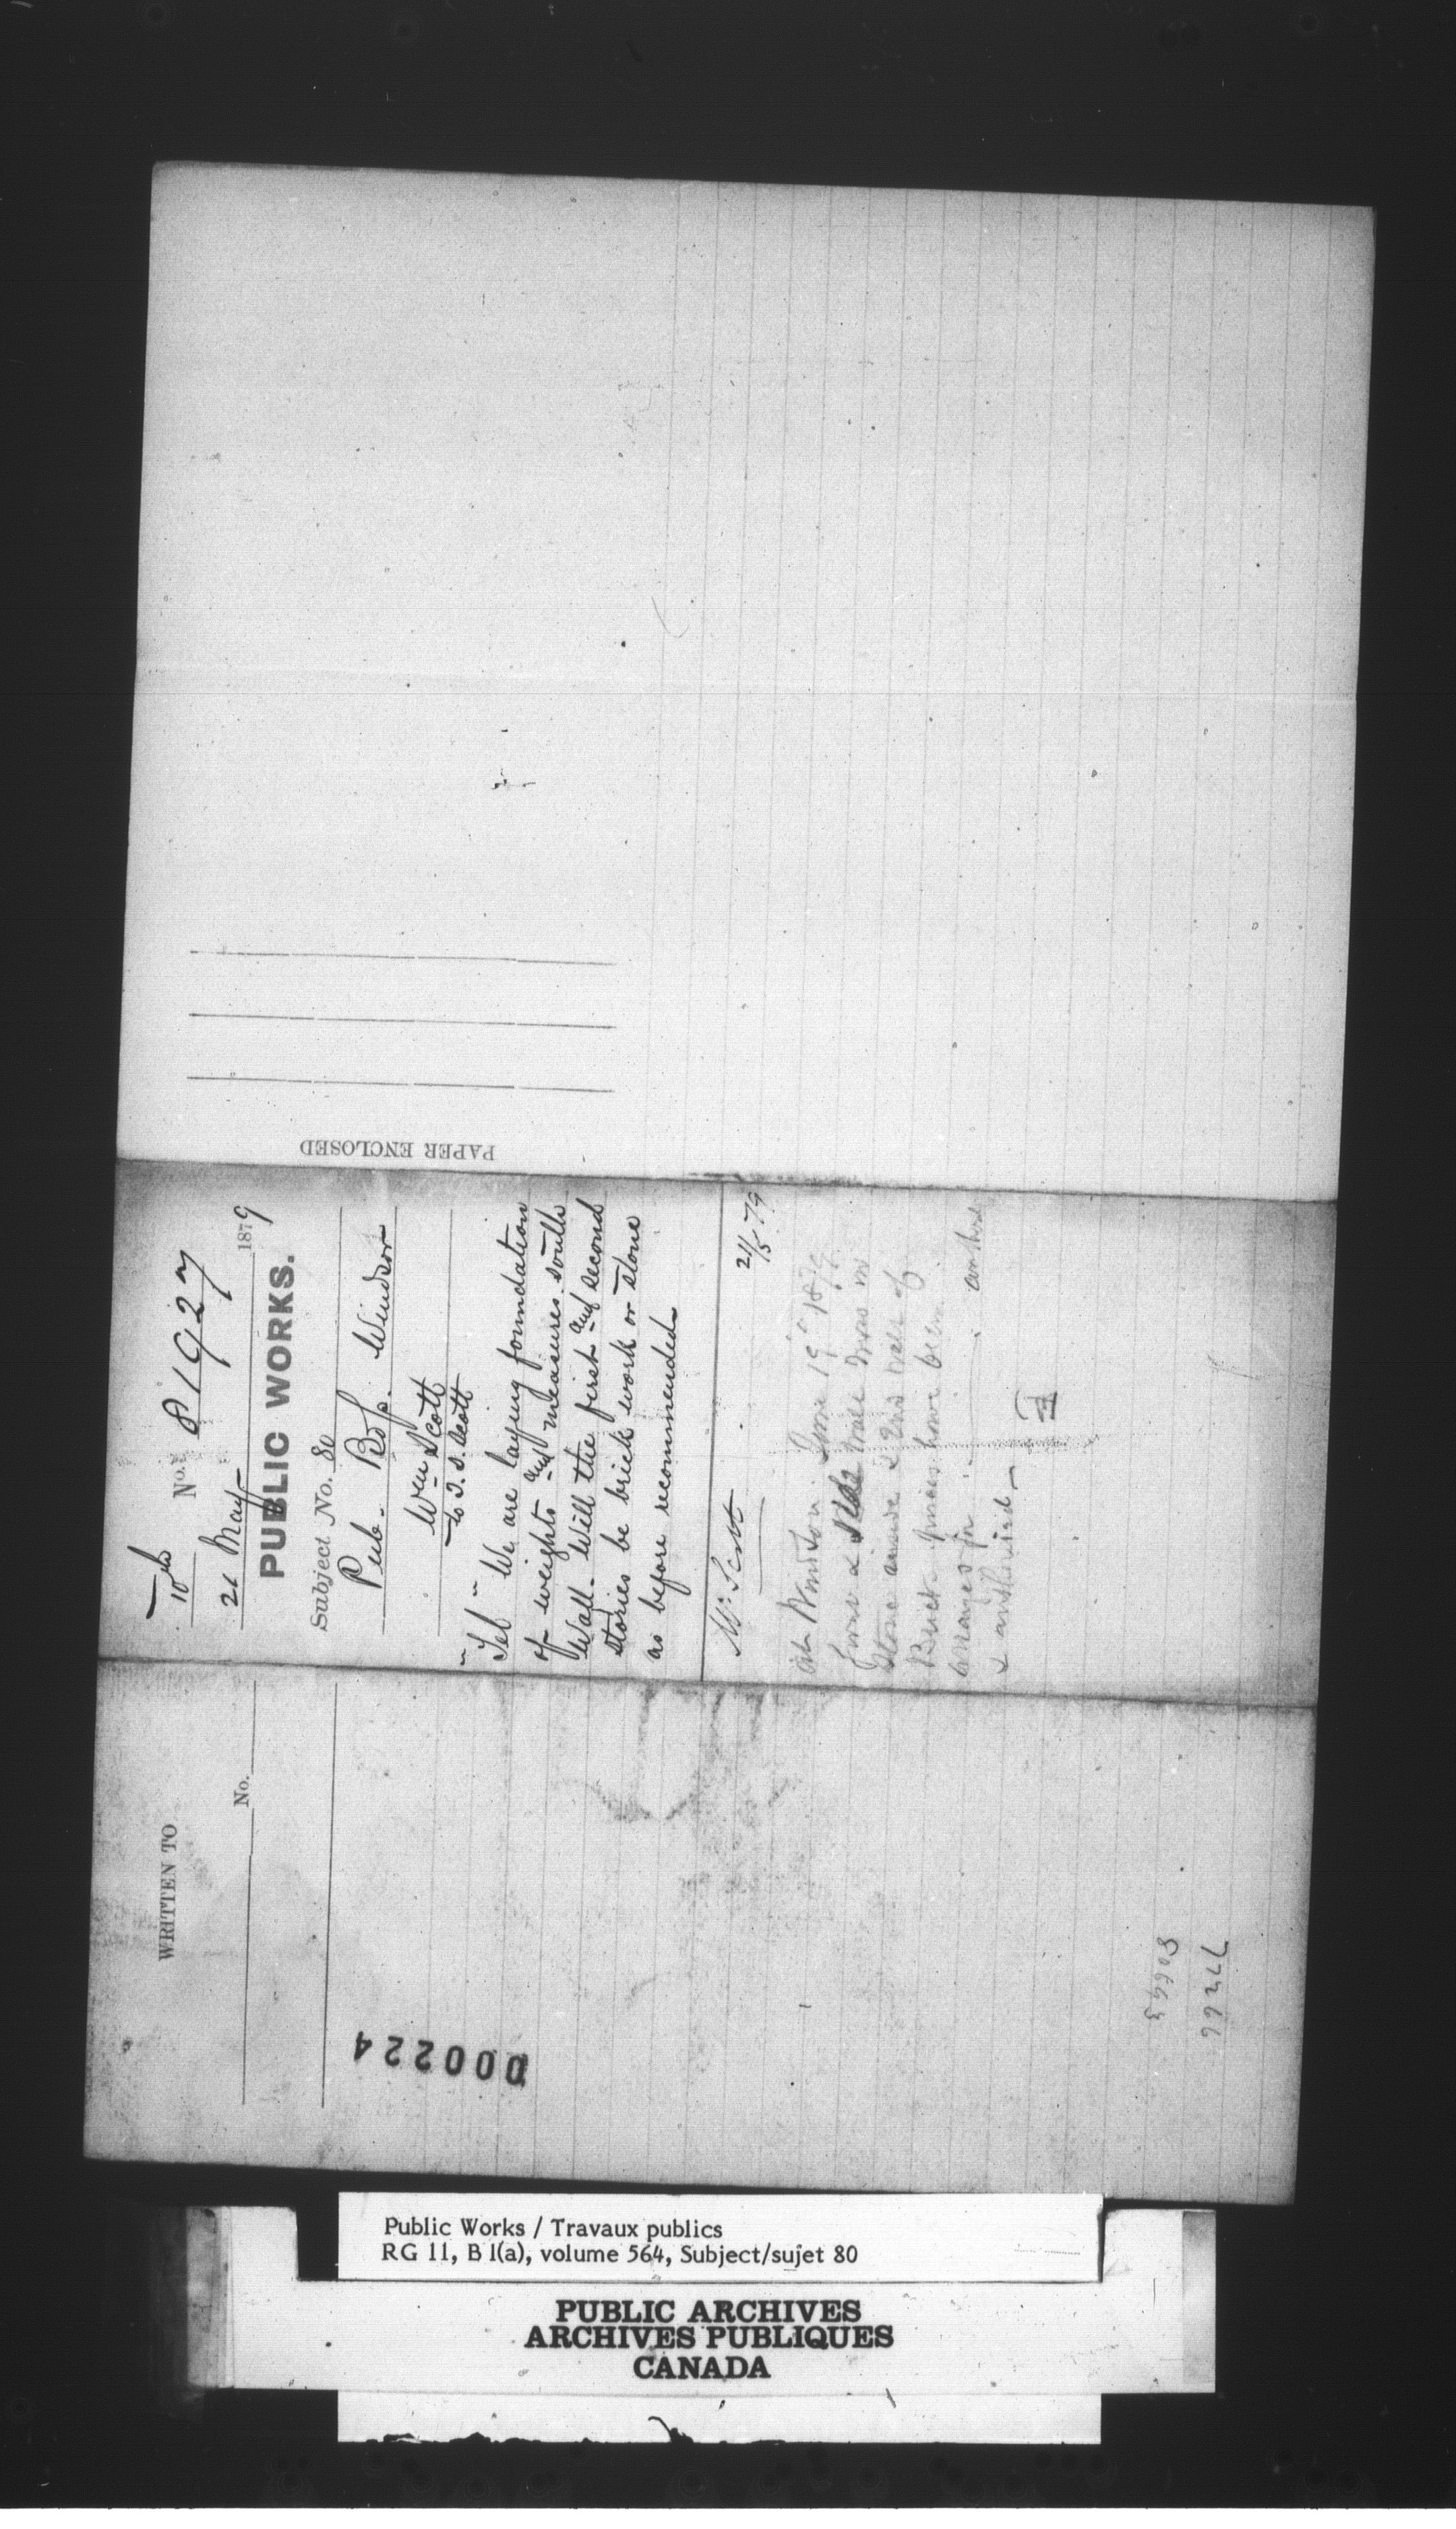 No. 81927
21 May 1879
PUBLIC WORKS.
Subject No. 80
Pub. Bdgs. Windsor
Wm Scott
to T. S. Scott
"Tel" We are laying foundation
of weights and measures south
Wall. Will the first and second
stories be brick work or stone
as before recommended
Mr. Scott
21/5 79
June 19" 1879
Stone
prices have been
& authorised
PAPER ENCLOSED
WRITTEN TO
No.
000224
80663
77266
Public Works / Travaux publics
RG 11, B 1(a), volume 564, Subject/sujet 80
PUBLIC ARCHIVES
ARCHIVES PUBLIQUES
CANADA